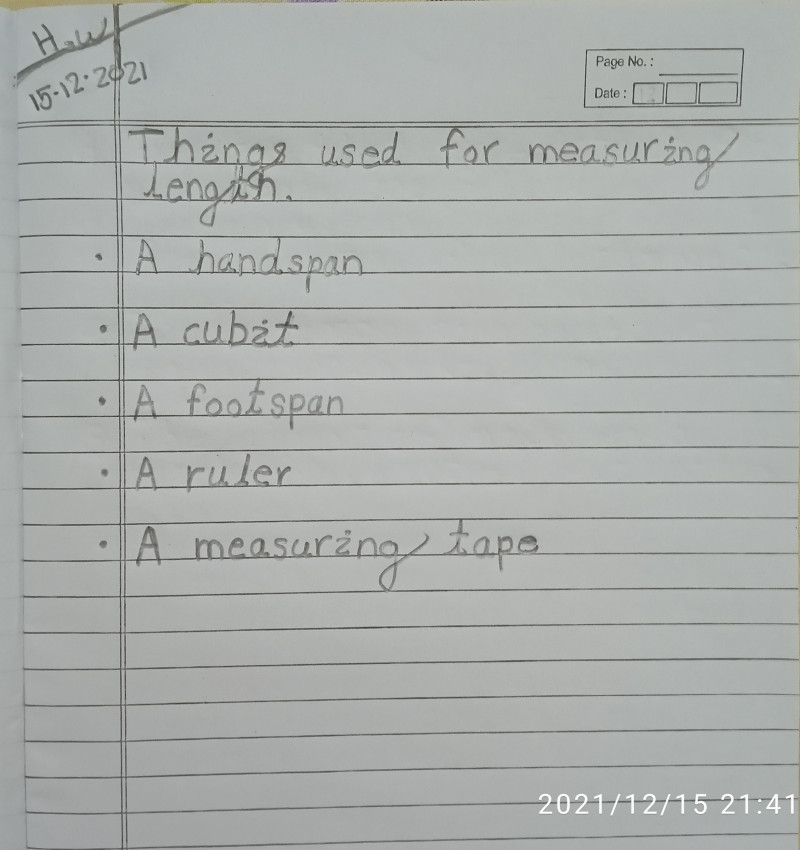 H.W
15-12-2021
Page No. :
Date :
Things used for measuring
length.
• A handspan
• A cubit
• A footspan
• A ruler
• A measuring tape
2021/12/15 21:41